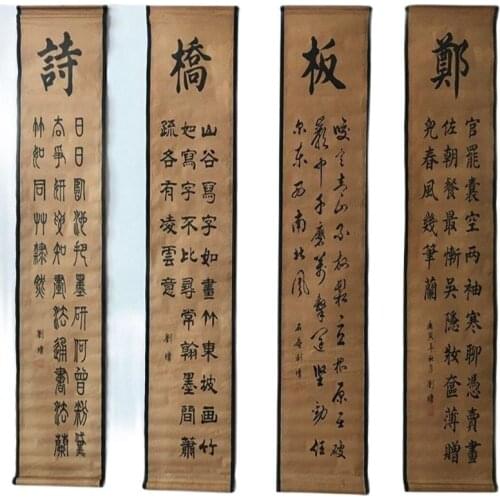 鄭
官罷囊空两袖寒聊憑賣畫
佐朝餐最慚吳隱妝奩薄贈
兒春風幾筆蘭
劉墉
板
咬定青山不放鬆立根原在破
巖中千磨萬擊還堅勁任
尔東西南北風
石庵劉墉
橋
山谷寫字如畫竹東坡画竹
如寫字不比尋常翰墨間蕭
疏各有凌雲意
劉墉
詩
日日臨池把墨研何曾粉黛
去爭妍要知畫法通書法蘭
竹如同艸隸然
劉墉